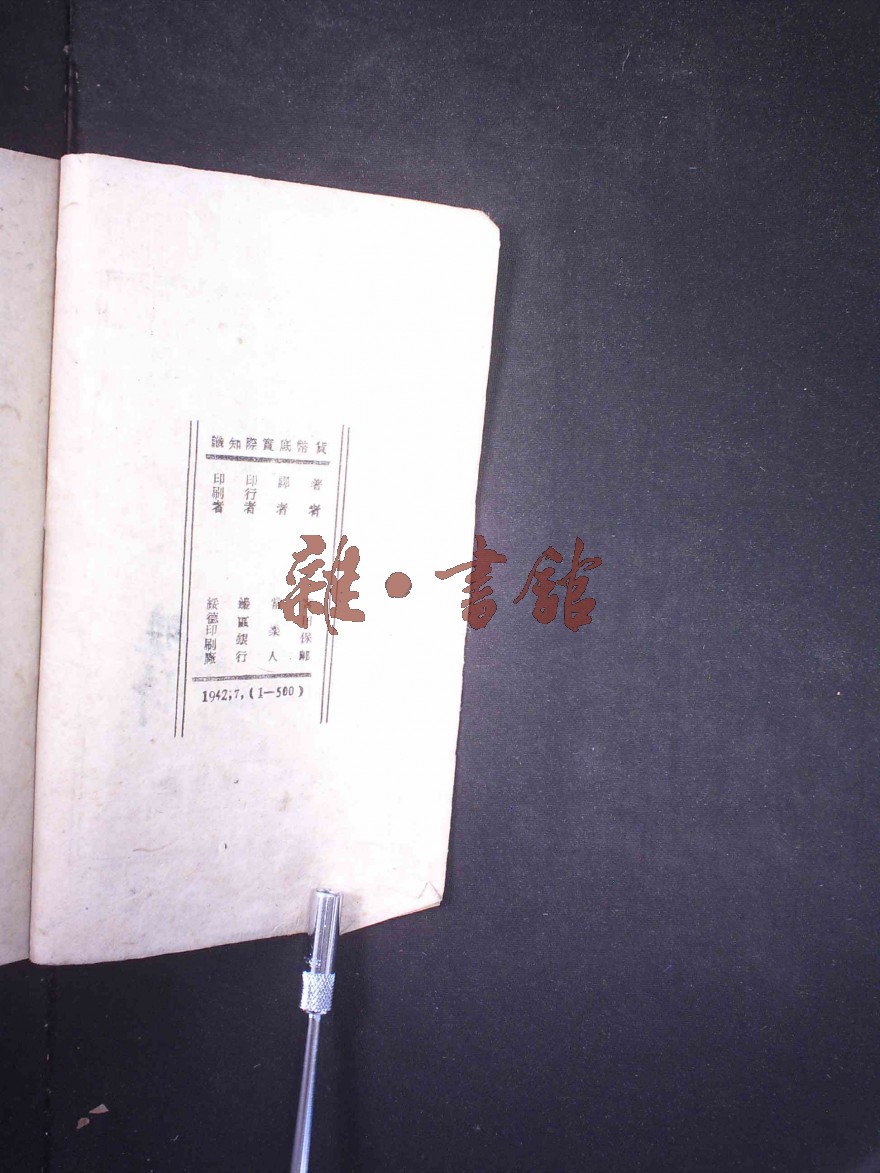 貨幣底實際知識
著者 保郎
譯者 人
印行者 邊區銀行
印刷者 綏德印刷廠
1942;7,(1—500)
雜·書館